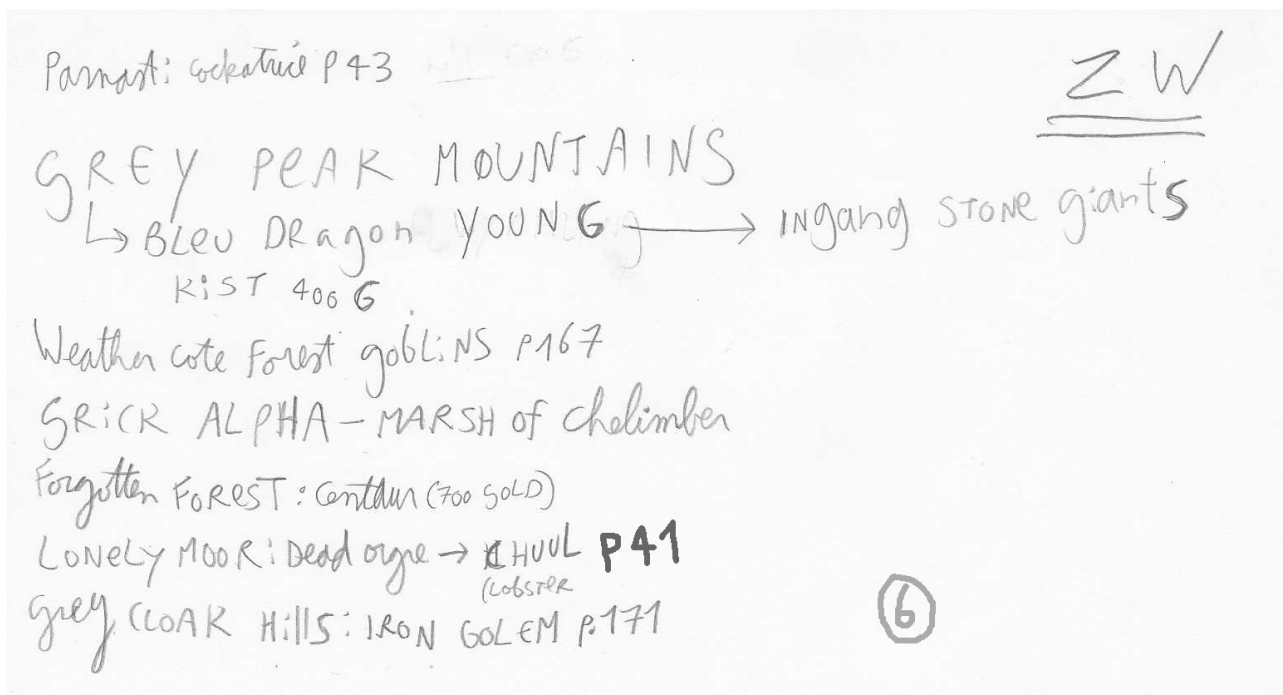 Parnast: cockatrice P43
ZW
GREY PEAK MOUNTAINS
↳ BLEU DRagon YOUNG → INgang STONE giants
KiST 400 G
Weather cote Forest gobLiNS P167
GRiCK ALPHA - MARSH of Chelimber
Forgotten FOREST: Centaur (700 GOLD)
LONELY MOOR: Dead ogre → CHUUL P41
(LOBSTER
Grey CLOAK Hills: IRON GOLEM p.171
6